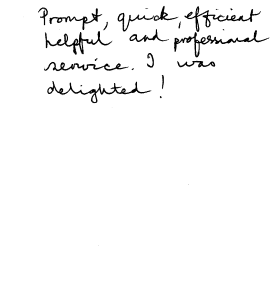 Prompt, quick, efficient
helpful and professional
service. I was
delighted!